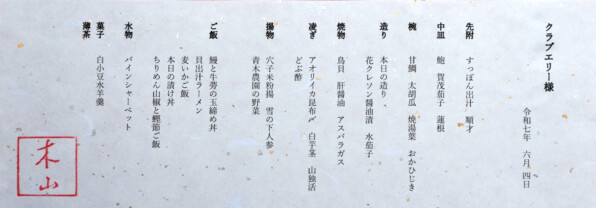 クラブエリー様
令和七年 六月 四日
先附 すっぽん出汁 順才
中皿 鮑 賀茂茄子 蓮根
椀 甘鯛 太胡瓜 焼湯葉 おかひじき
造り 本日の造り
花クレソン醤油漬 水茄子
焼物 鳥貝 肝醤油 アスパラガス
凌ぎ アオリイカ昆布〆 白芋茎 山独活
どぶ酢
揚物 穴子米粉揚 雪の下人参
青木農園の野菜
ご飯 鰻と牛蒡の玉締め丼
貝出汁ラーメン
麦いかご飯
本日の漬け丼
ちりめん山椒と鰹節ご飯
水物 パインシャーベット
菓子 白小豆水羊羹
薄茶
木山